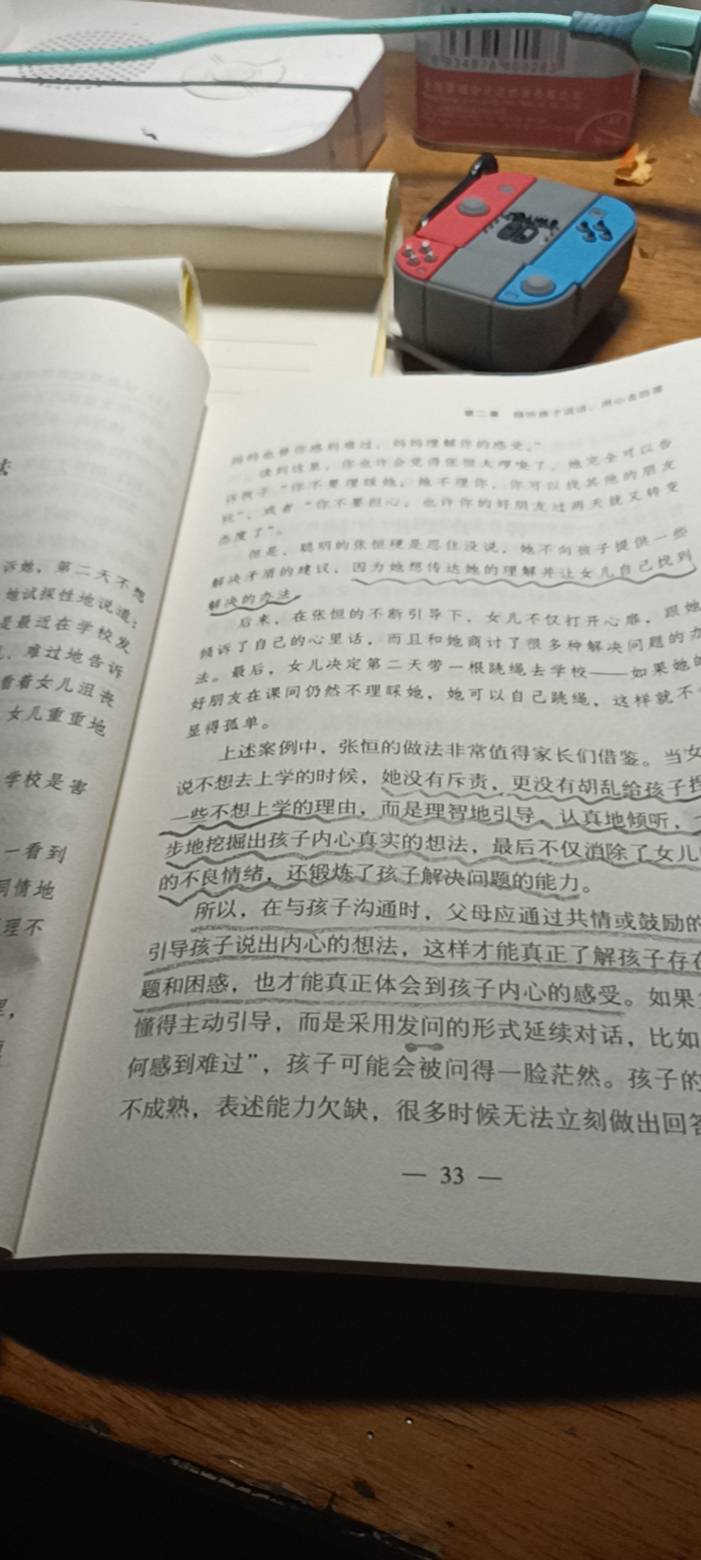 法
诉她，第二天不想
她试探性地说道：
是最近在学校发
难过地告诉
看着女儿沮丧
女儿重重地
学校是害
一看到
同情地
理不
第二章
妈妈也替你感到难过，妈妈理解你的感受。”
读到这里，你也许会觉得张恒太啰嗦了，她完全可以告
诉孩子“你不要理睬她，她不理你，你可以找其他的朋友
玩”，或者“你不要担心，也许你的好朋友过两天就又转变
态度了”。
但是，聪明的张恒硬是忍住没说，她不向孩子提供一些
解决矛盾的建议，因为她想传达她的理解并让女儿自己找到
解决的办法。
后来，在张恒的不断引导下，女儿不仅打开心扉，跟她
倾诉了自己的心里话，而且和她商讨了很多种解决问题的办
法。最后，女儿决定第二天带一根跳绳去学校——如果她的
好朋友在课间仍然不理睬她，她可以自己跳绳，这样就不
显得孤单。
上述案例中，张恒的做法非常值得家长们借鉴。当女
说不想去上学的时候，她没有斥责，更没有胡乱给孩子
一些不想上学的理由，而是理智地引导、认真地倾听，
步地挖掘出孩子内心真实的想法，最后不仅消除了女儿
的不良情绪，还锻炼了孩子解决问题的能力。
所以，在与孩子沟通时，父母应通过共情或鼓励的
引导孩子说出内心的想法，这样才能真正了解孩子存在
题和困惑，也才能真正体会到孩子内心的感受。如果
懂得主动引导，而是采用发问的形式延续对话，比如
何感到难过”，孩子可能会被问得一脸茫然。孩子的
不成熟，表述能力欠缺，很多时候无法立刻做出回答
— 33 —